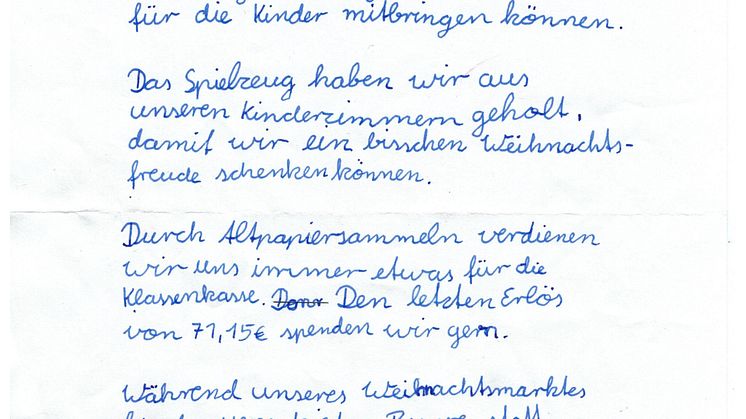 für die Kinder mitbringen können.
Das Spielzeug haben wir aus
unseren Kinderzimmern geholt,
damit wir ein bisschen Weihnachts-
freude schenken können.
Durch Altpapiersammeln verdienen
wir uns immer etwas für die
Klassenkasse. Den letzten Erlös
von 71,15€ spenden wir gern.
Während unseres Weihnachtsmarktes